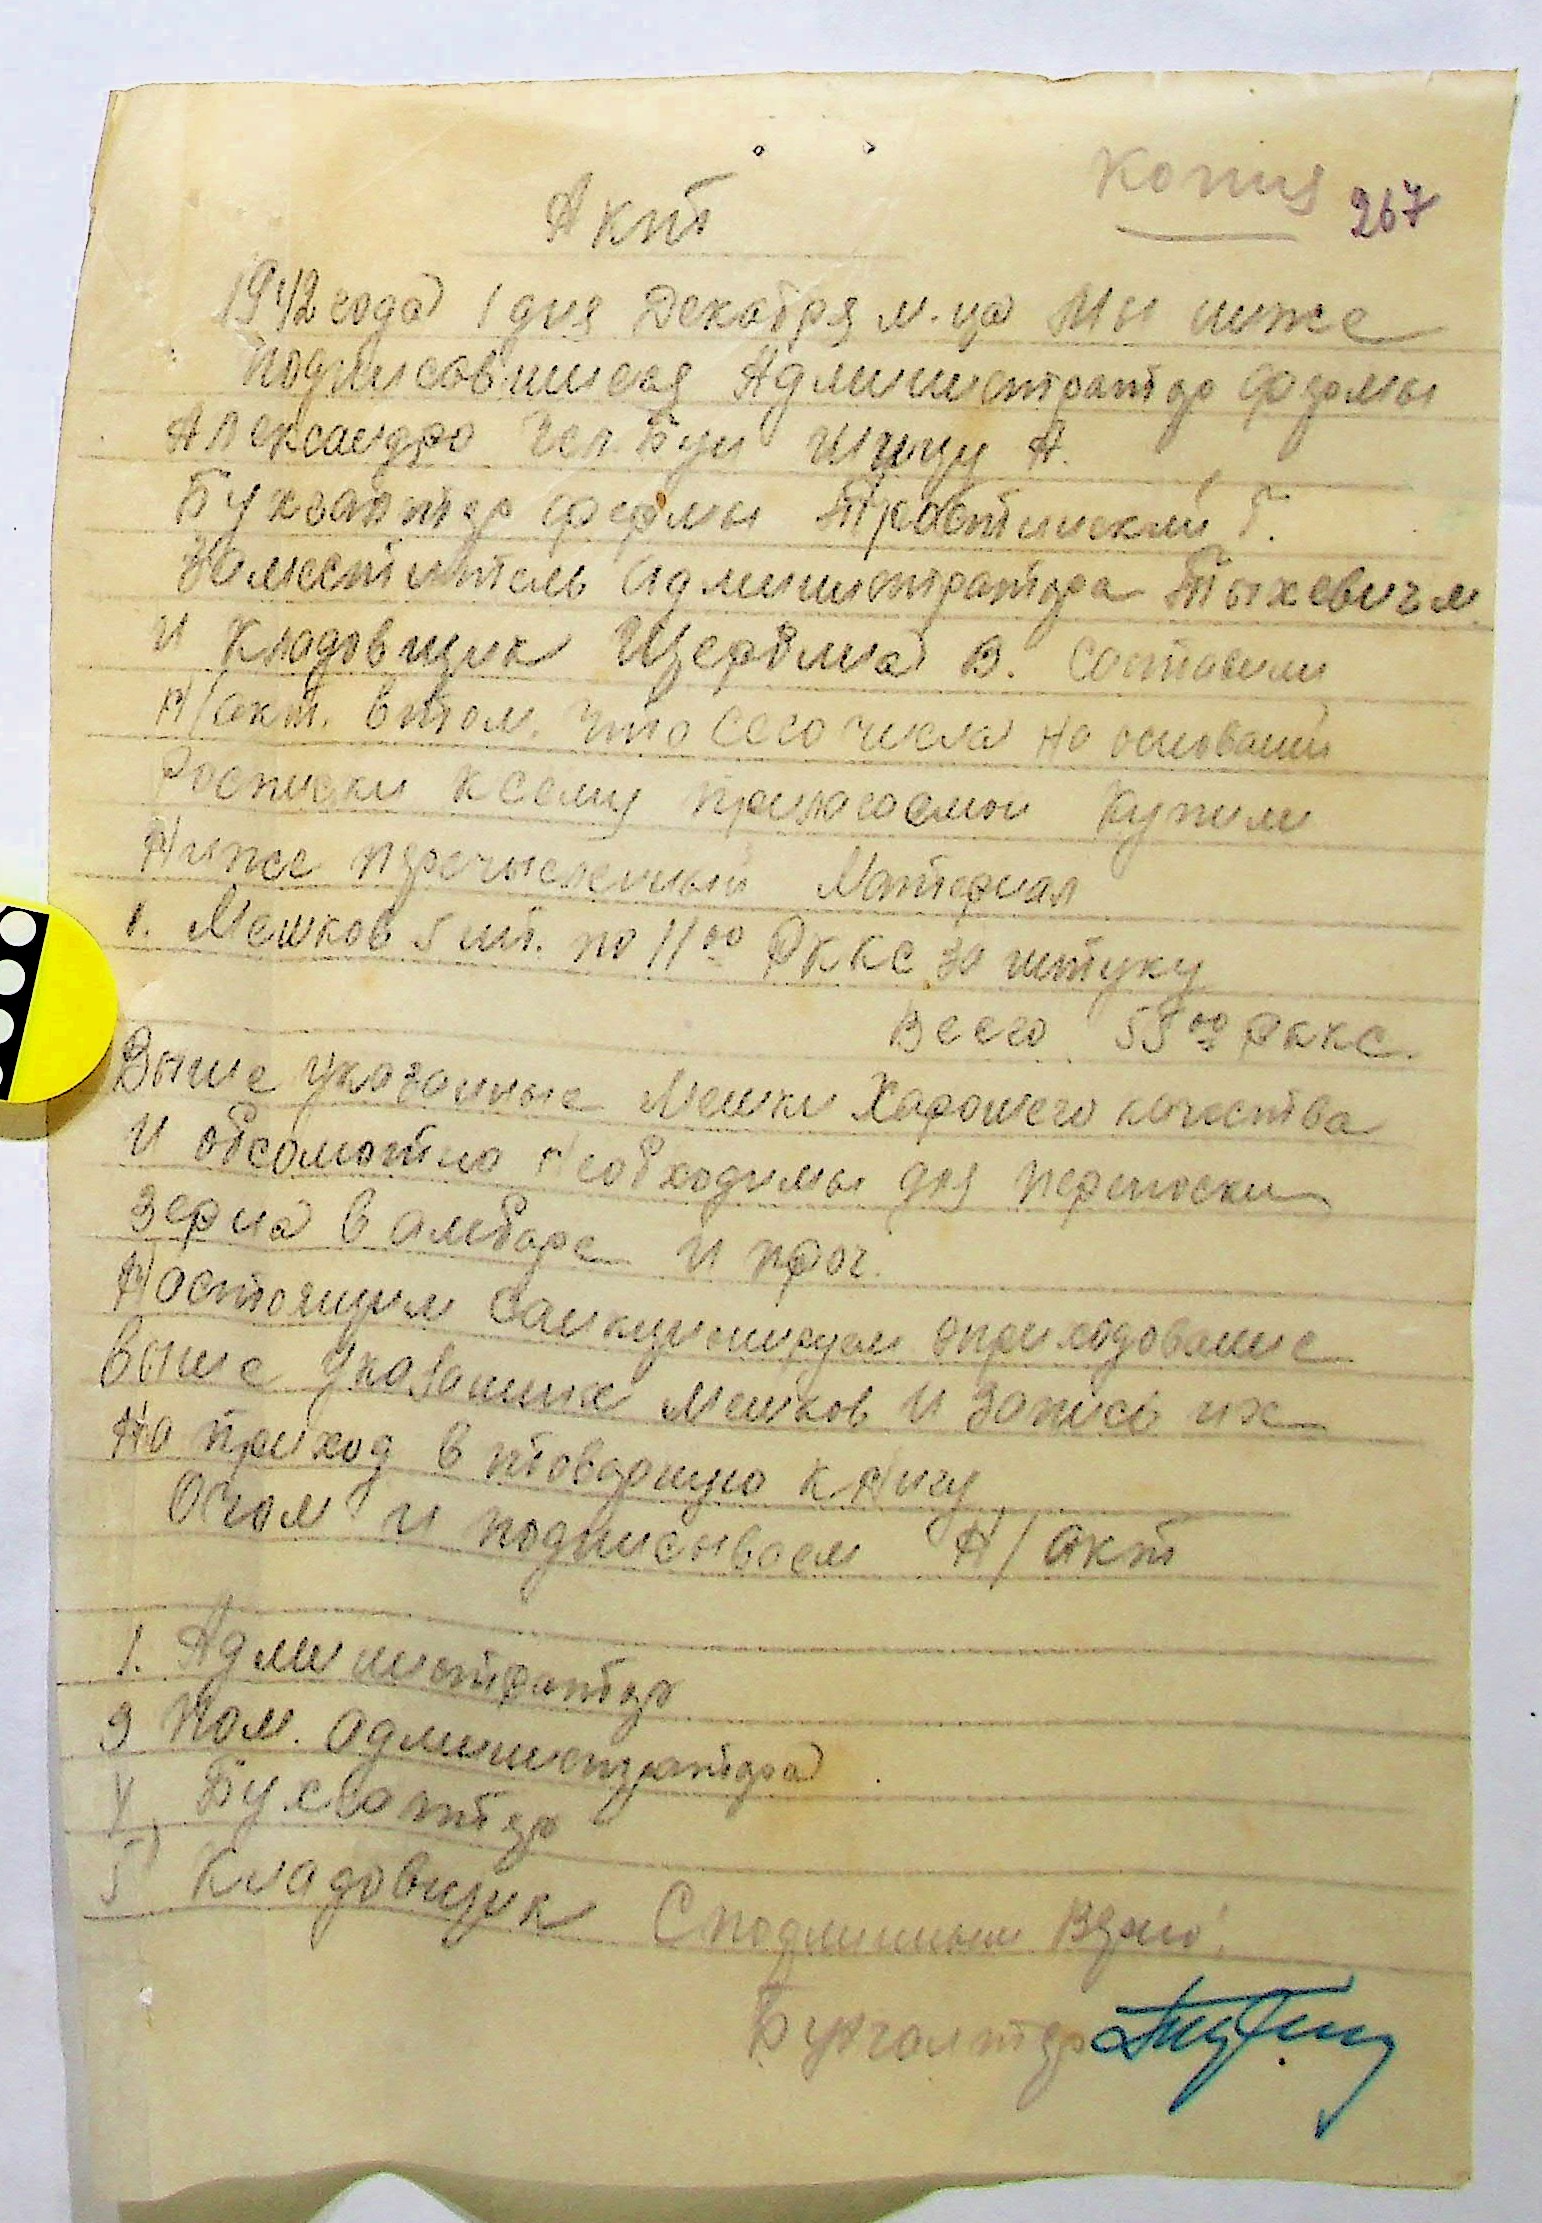 Копия
267
Акт
1942 года 1 дня Декабря м-ца Мы ниже
подписавшиеся Администратор фермы
Александро А.
Бухгалтер фермы Г.
Заместитель администратора Тыхевич М.
и Кладовщик Щербина В. составили
Н/акт. в том. что сего числа на основании
Росписки к сему прилогаемой купили
Ниже перечысленный Материал
1. Мешков 5 шт. по 11 00 РККС за штуку
Всего 55 00 Рккс.
Выше указанные мешки Харошего качества
и обсолютно Необходимы для переноски
зерна в амбаре и проч.
Настоящим санкционируем оприходование
выше указаних мешков и запись их
На приход в товарную кНигу
О чом и подписываем Н/акт
1. Администратор
3 Пом. администратора
4 Бухгалтер
5) Кладовщик
С подлинным Верно:
Бухгалтер